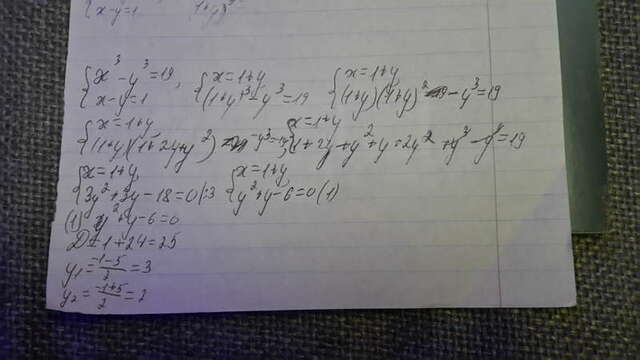 x-y=1 (1+y)
{x³-y³=19, {x=1+y {x=1+y
{x-y=1 {(1+y)³-y³=19 {(1+y)(1+y)²-y³=19
{x=1+y {x=1+y
{(1+y)(1+2y+y²)-y³=19 {1+2y+y²+y+2y²+y³-y³=19
{x=1+y, {x=1+y,
{3y²+3y-18=0|:3 {y²+y-6=0(1)
(1) y²+y-6=0
D=1+24=25
y₁=\frac{-1-5}{2}=3
y₂=\frac{-1+5}{2}=2